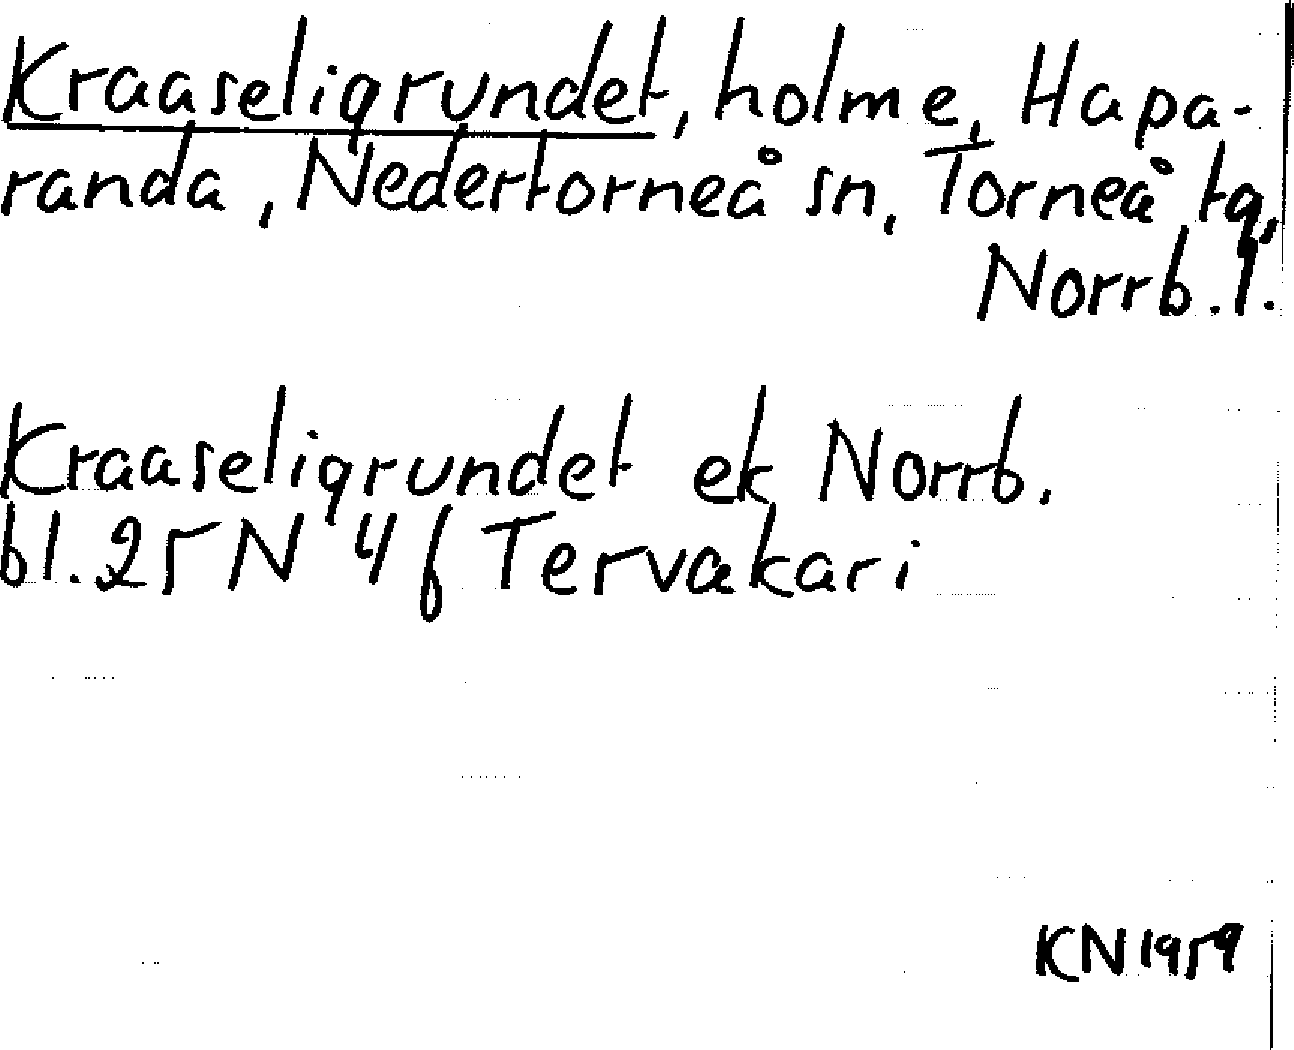 Kraaseligrundet, holme, Hapa-
randa, Nedertorneå sn, Torneå tg,
Norrb. l.
Kraaseligrundet ek Norrb.
bl. 25 N 4 f Tervakari
KN 1959